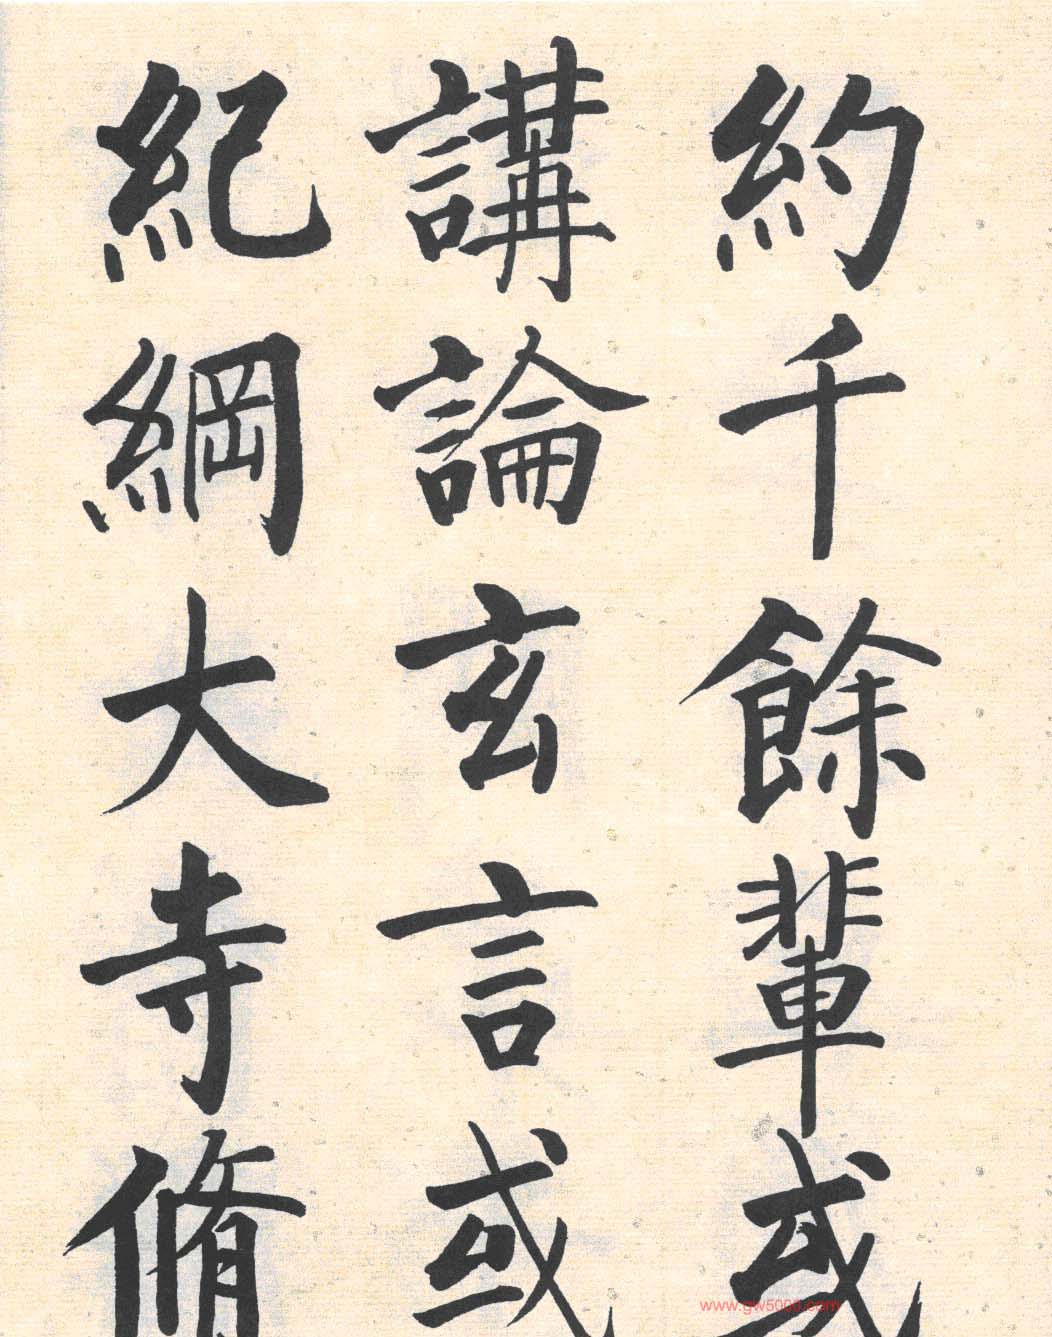 約千餘輩或
講論玄言或
紀綱大寺脩
www.gw5000.com